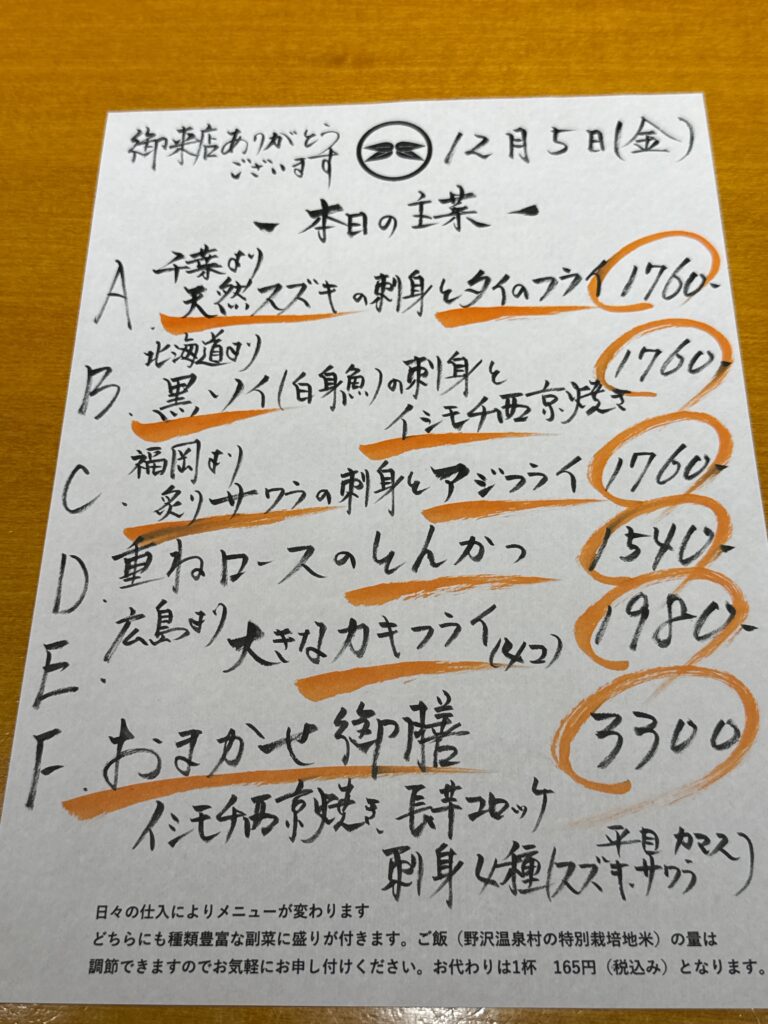 御来店ありがとう
ございます
12月5日(金)
- 本日の主菜 -
千葉より
A. 天然スズキの刺身とタイのフライ 1760-
北海道より
B. 黒ソイ(白身魚)の刺身と 1760-
イシモチ西京焼き
福岡より
C. 炙りサワラの刺身とアジフライ 1760-
D. 重ねロースのとんかつ 1540-
E. 広島より 大きなカキフライ(4コ) 1980-
F. おまかせ御膳 3300
イシモチ西京焼き、長芋コロッケ
刺身4種(スズキ、サワラ 平目 カマス)
日々の仕入によりメニューが変わります
どちらにも種類豊富な副菜に盛りが付きます。ご飯(野沢温泉村の特別栽培地米)の量は
調節できますのでお気軽にお申し付けください。お代わりは1杯 165円(税込み)となります。